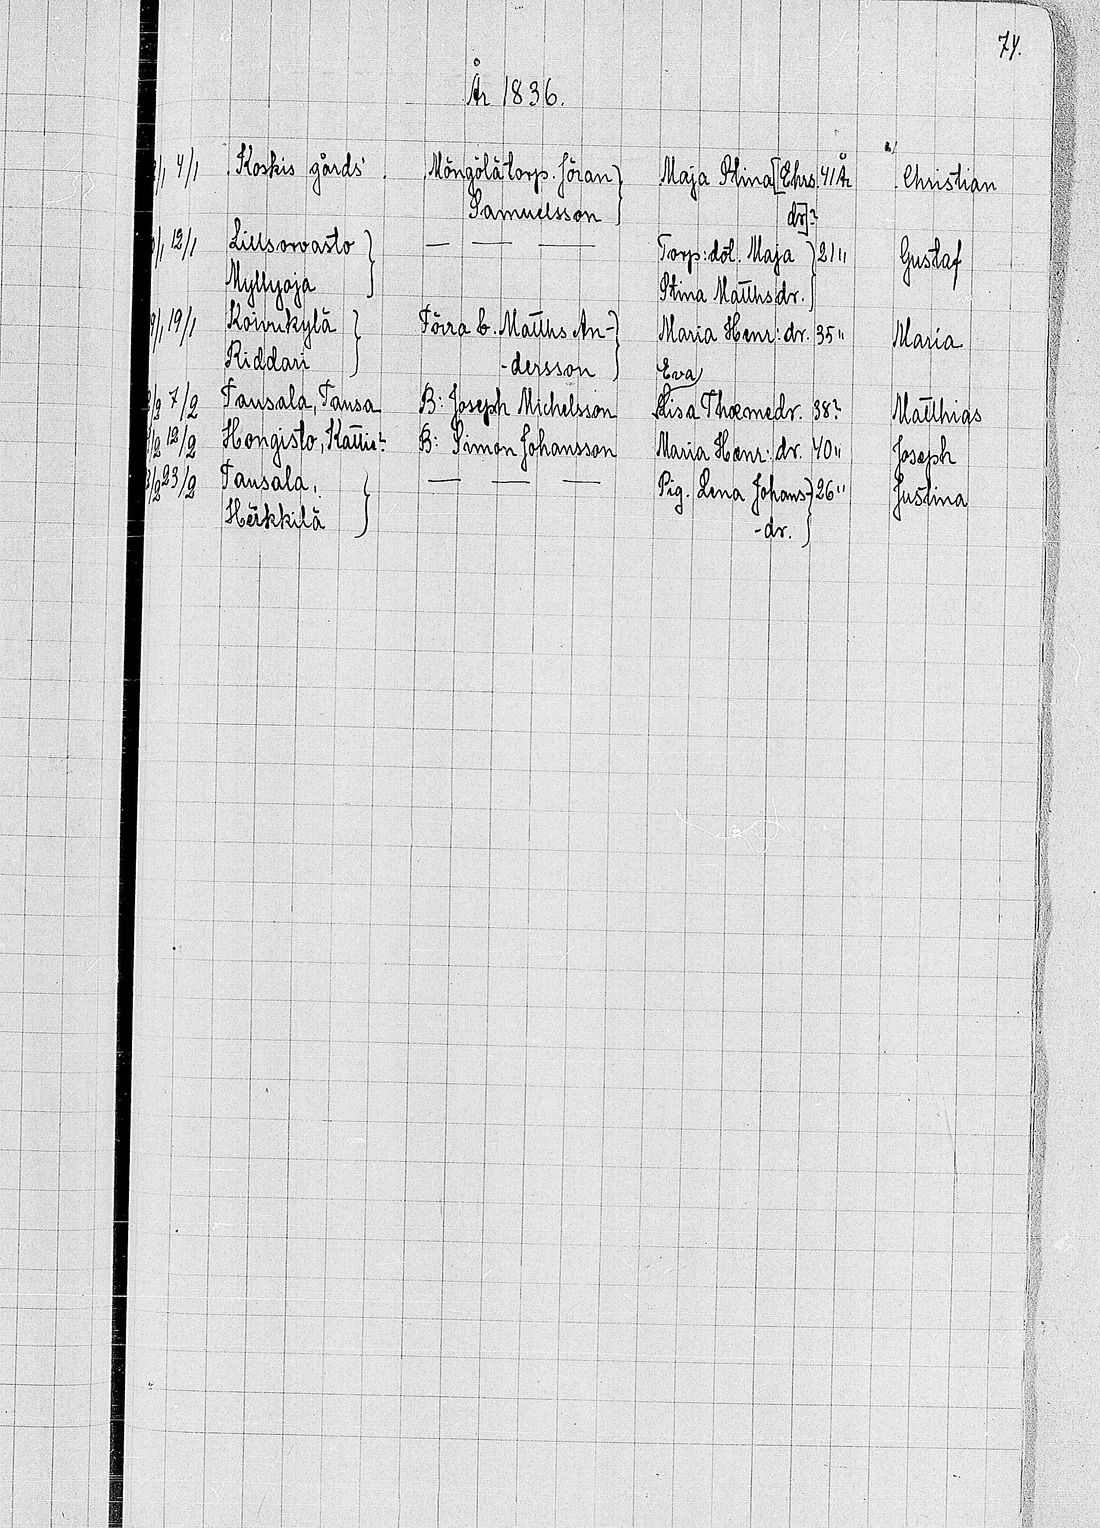 74.
År 1836.
/1 4/1 Koskis gårds Möngölä torp. Jöran Maja Stina [Chrs. 41 År Christian
Samuelsson dr]?
/1 12/1 Lillsorvasto — — — Torp: dôt. Maja 21 " Gustaf
Myllyoja Stina Matths dr.
/1 19/1 Koivukylä Förra b. Matths An- Maria Henr: dr. 35 " Maria
Riddari -dersson Eva
/2 7/2 Tausala, Tausa B: Joseph Michelsson Lisa Thomedr. 38? Matthias
/2 12/2 Hongisto, Kattic? B: Simon Johansson Maria Henr: dr. 40 " Joseph
/2 23/2 Tausala, — — — Pig. Lena Johans- 26 " Justina
Heikkilä -dr.